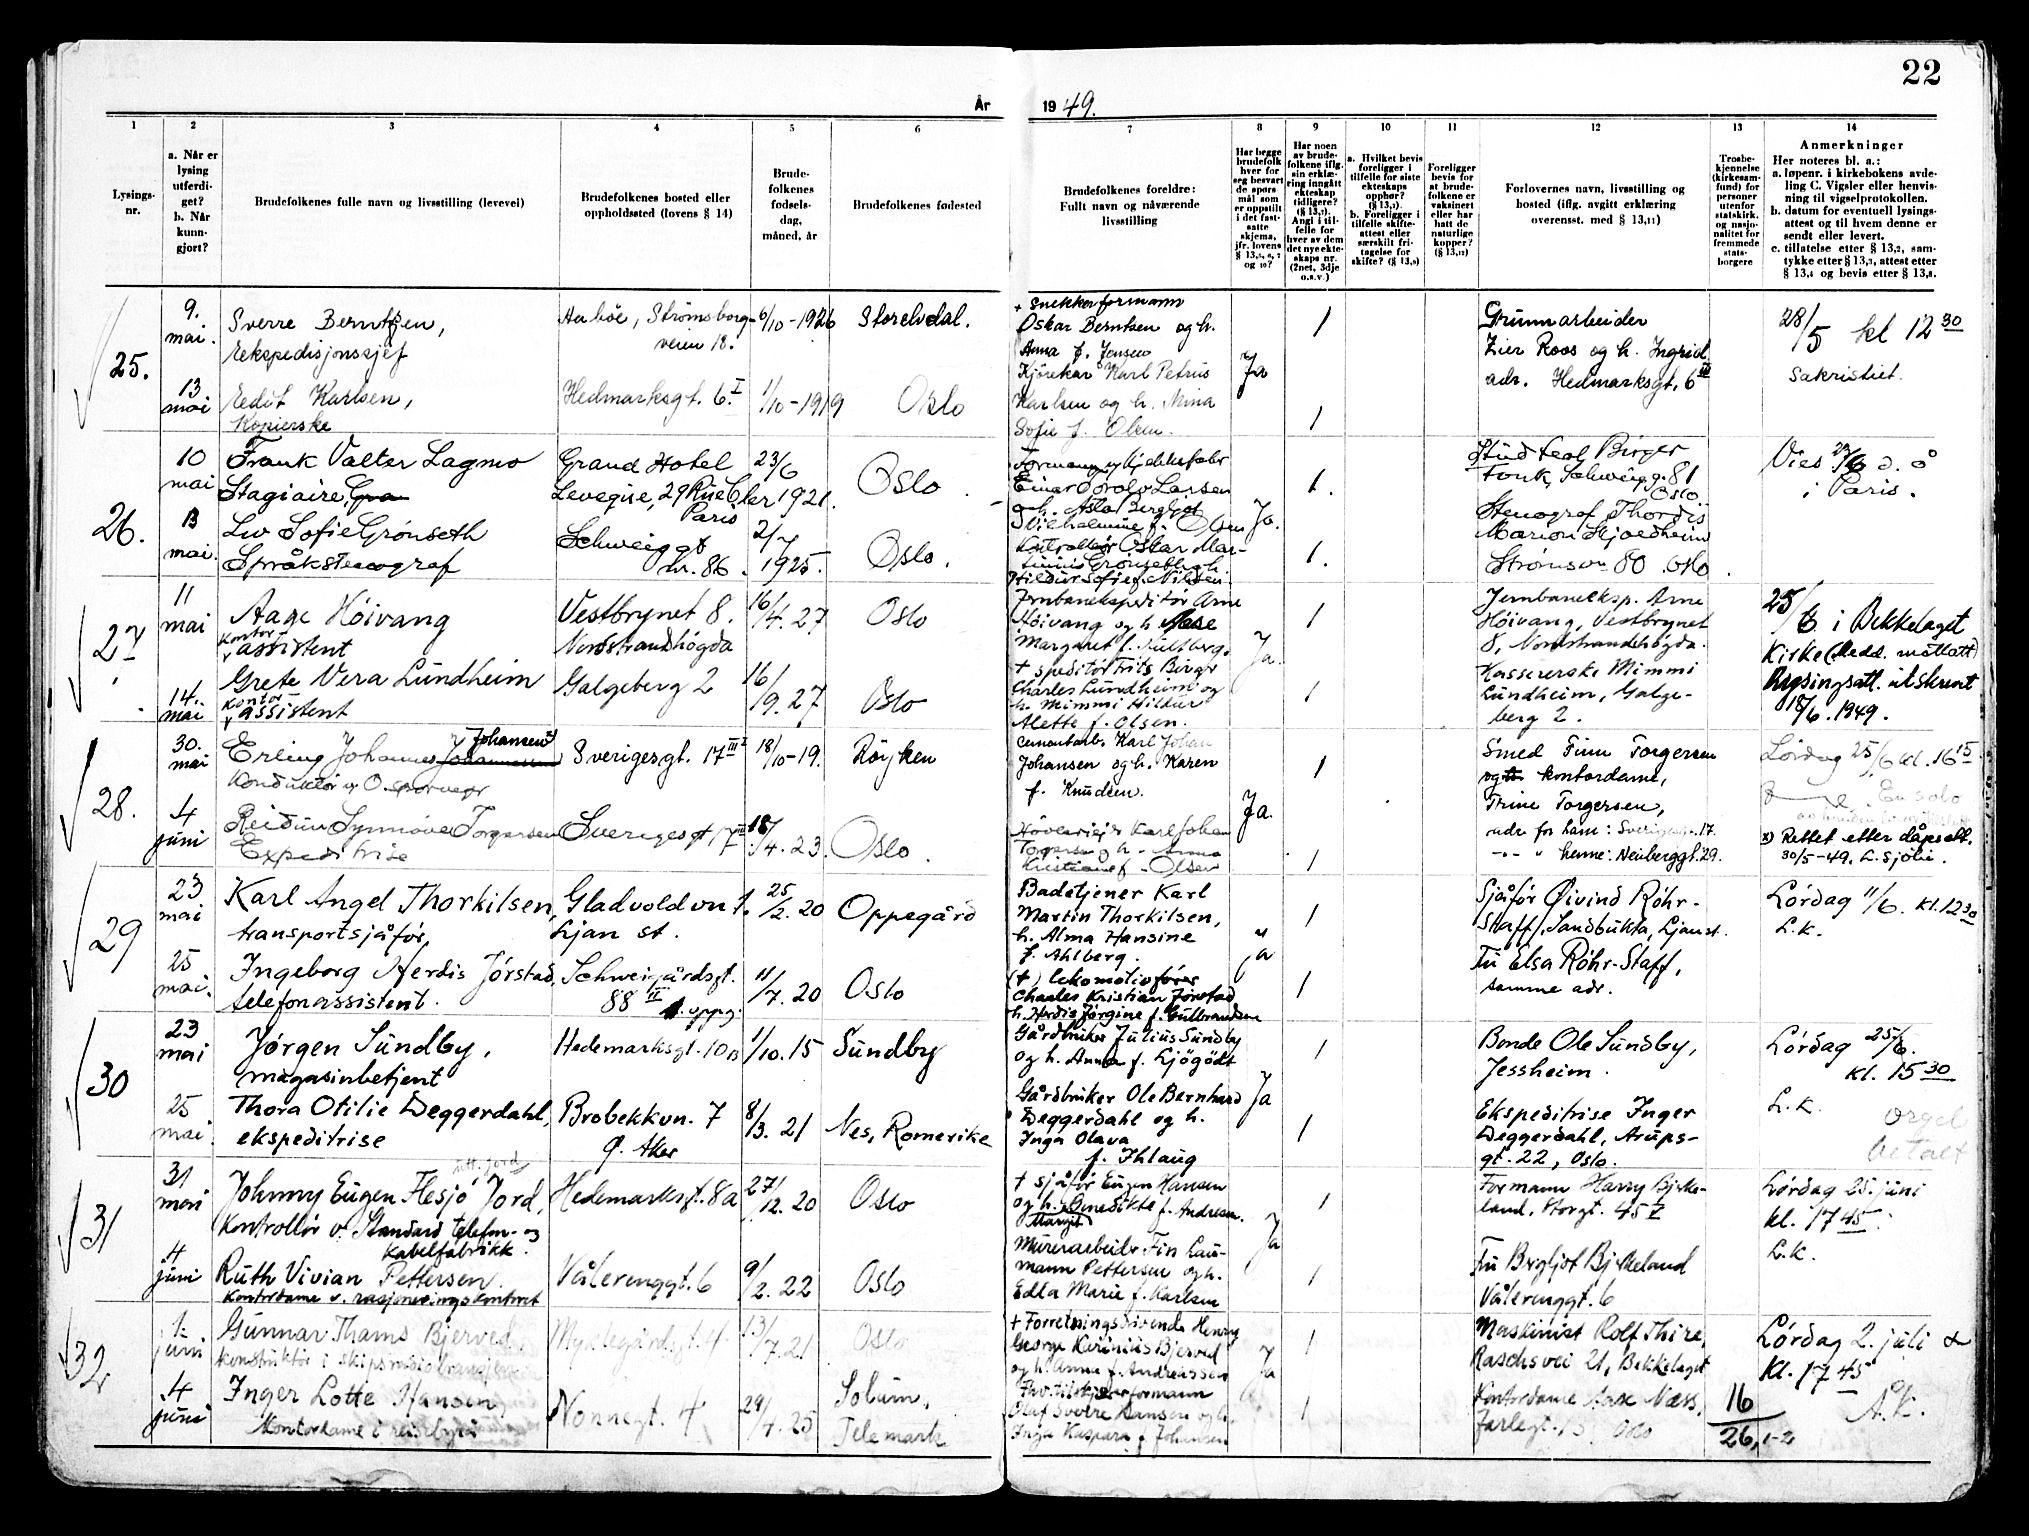 22
År
19 49.
1
2
3
4
5
6
7
8
9
10
11
12
13
14
Lysings-
nr.
a. Når er
lysing
utferdi-
get?
b. Når
kunn-
gjort?
Brudefolkenes fulle navn og livsstilling (levevei)
Brudefolkenes bosted eller
oppholdssted (lovens § 14)
Brude-
folkenes
fødsels-
dag,
måned, år
Brudefolkenes fødested
Brudefolkenes foreldre:
Fullt navn og nåværende
livsstilling
Har begge
brudefolk
hver for
seg besvart
de spørs
mål som
er oppstilt
i det fast-
satte
skjema,
jfr. lovens
Har noen
av brude-
folkene iflg.
sin erklæ-
ring inngått
ekteskap
tidligere?
Angi i til-
felle for
hver av dem
det nye ekte-
skaps nr.
(2net, 3dje
o.s.v.)
a. Hvilket bevis
foreligger i
tilfelle for siste
ekteskaps
opphør?
b. Foreligger i
tilfelle skifte-
attest eller
særskilt fri-
tagelse for
skifte?
Foreligger
bevis for
at brude-
folkene er
vaksinert
eller har
hatt de
naturlige
kopper?
Forlovernes navn, livsstilling og
bosted (iflg. avgitt erklæring
overensst. med § 13,11)
Trosbe-
kjennelse
(kirkesam-
fund) for
personer
utenfor
statskirk.
og nasjo-
nalitet for
fremmede
stats-
borgere
Anmerkninger
Her noteres bl. a.:
a. løpenr. i kirkebokens avde-
ling C. Vigsler eller henvis-
ning til vigselprotokollen.
b. datum for eventuell lysings-
attest og til hvem denne er
sendt eller levert.
c. tillatelse etter § 13,2, sam-
tykke etter § 13,3, attest etter
§ 13,4 og bevis etter § 13,8.
25.
9.
mai.
Sverre Berntsen,
Strømsborg-
veien 18.
6/10-1926
Storelvdal.
+ Snekkerformann
Oskar Berntsen og h.
Anna f. Jensen
1
Grunnarbeider
Roos og h. Ingrid
adr. Hedmarksgt. 6 III
28/5 kl 12 30
Sakristiet.
13
mai
Edit Karlsen,
Kopierske
Hedmarksgt. 6 I
1/10-1919
Oslo
Kjørekar Karl Petrus
Karlsen og h. Mina
Sofie f. Olsen.
Ja
1
26.
10
mai
Frank Valter Lagmo
Stagiaire,
Grand Hotel
Paris
23/6
1921.
Oslo
Einar Larsen
1.
Stud. teol. Birger
Oslo
i Paris.
13
mai.
Liv Sofie Grønseth
Språkstenograf
Schweiggt
nr. 86.
2/7
1925.
Oslo.
Ja.
1.
Stenograf Thordis
Marion
80 Oslo.
27.
11
mai
Aage Höivang
Kontor-
assistent
Vestbrynet 8.
Nordstrandhögda
16/4. 27
Oslo
Jernbanekspeditør Arne
Höivang og h. Aase
1
Jernbaneeksp. Arne
Höivang, Vestbrynet
8, Nordstrandhögda.
25/6 i Bekkelaget
Kirke
Lysingsatt. utskrevet
18/6. 1949.
14.
mai
Grete Vera Lundheim
Kontor-
assistent
Galgeberg 2
16/9. 27
Oslo
+ speditör Frits Birger
Charles Lundheim og
h. Mimmi Hildur
Alette f. Olsen.
Ja.
1
Kassererske Mimmi
Lundheim, Galge-
berg 2.
28.
30.
mai
Erling Johannes Johansen
Konduktør v. O. sporveger
Sverigesgt. 17 III
18/10-19.
Røyken
cementarb. Karl Johan
Johansen og h. Karen
f. Knudsen.
1
Smed Finn Torgersen
og kontordame,
Trine Torgersen,
Lördag 25/6 kl. 16 15
x) Rettet etter dåpsatt.
30/5-49. L. Sjölie.
4
juni
Reidun Synnöve Torgersen
Expeditrise
Sverigesgt 17 II
18/4. 23.
Oslo.
Karl Johan
Torgersen og h. Anna
Kristiane f. Olsen
Ja.
1
adr for ham: Sverigesgt. 17.
henne: Neuberggt. 29.
29
23
mai
Karl Angel Thorkilsen,
transportsjåför,
Gladvoldvn 1.
Ljan st.
25/2. 20
Oppegård
Badetjener Karl
Martin Thorkilsen,
h. Alma Hansine
f. Ahlberg.
1
Sjåför Øivind Röhr-
Staff, Sandbukta, Ljan st.
Lördag 11/6. kl. 12 30
L.k.
25
mai.
Ingeborg Herdis Jörstad,
telefonassistent.
Schweigårdsgt.
88 II
oppg.
11/7. 20
Oslo
(+) lokomotivförer
Charles Kristian Jörstad
h. Herdis Jörgine f. Gulbrandsen
Ja
1
Fru Elsa Röhr-Staff,
samme adr.
30
23
mai
Jørgen Sundby,
magasinbetjent
Hedemarksgt. 10 B
1/10. 15
Sundby
Gårdbruker Julius Sundby
og h. Anna f. Ljögödt
1
Bonde Ole Sundby,
Jessheim.
Lördag 25/6.
kl. 15 30
L.k.
orgel
betalt
25
mai.
Thora Otilie Deggerdahl,
ekspeditrise
Brobekkvn. 7
Ø. Aker
8/3. 21
Nes, Romerike
Gårdbruker Ole Bernhard
Deggerdahl og h.
Inga Olava
f. Ihlaug
Ja
1
Ekspeditrise Inger
Deggerdahl, Arups-
gt. 22, Oslo.
31
31
mai
Johnny Eugen Hesjö Jord,
Kontrollör v. Standard telefon- og
Kabelfabrikk.
Hedemarksgt. 8a
27/12. 20
Oslo
+ sjåför Eugen Hansen
og h. Benedikte f. Andresen.
Margit
1
Formann Harry Bjerke-
land, Storgt. 45 V
Lördag 25. juni
kl. 17 45
L.k.
4
juni
Ruth Vivian Pettersen.
Kontordame v. rasjoneringskontoret
Vålerenggt. 6
9/2. 22
Oslo
Murerarbeider Fin Lau-
mann Pettersen og h.
Edla Marie f. Karlsen
Ja
1
Fru Bergljot Bjerkeland
Vålerenggt. 6
32
1.
juni
Gunnar Thams Bjerved,
konstruktör i skipsradiobransjen
4
13/7. 21
Oslo
+ Forretningsdrivende Henry
George Bjerved
og h. Anna f. Andreassen
1
Maskinist Rolf Thire,
Raschsvei 21, Bekkelaget
Lördag 2. juli
Kl. 17 45
Å.K.
4
juni
Inger Lotte Hansen
Kontordame i reisebyrå
Nonnegt. 4
29/4. 25
Solum,
Telemark
Olaf Sverre Hansen og h.
Inga Kaspara f. Johansen
Ja
1
Kontordame Aase Næss,
Jarlegt. 15 Oslo
16
26,1-2